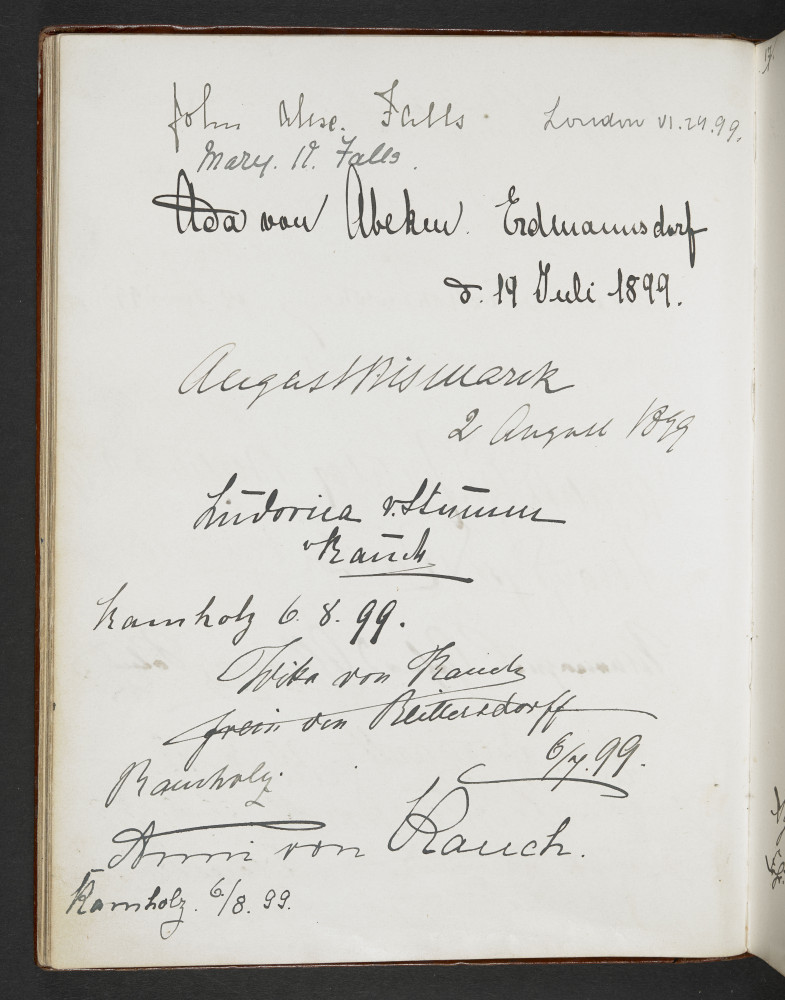 John Alex. Falls. London VI.29.99.
Mary. W. Falls.
Ada von Abeken. Erdmannsdorf
d. 19 Juli 1899.
August Bismarck
2 August 1899
Ludovica v. Stumm
v Rauch
Ramholz 6. 8. 99.
von Rauch
frein von Reitersdorff
6/7. 99.
Ramholz.
Anni von Rauch.
Ramholz. 6/8. 99.